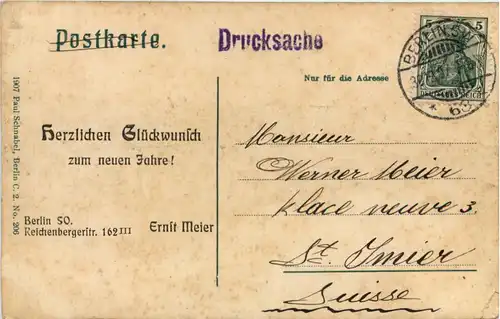 Postkarte.
Drucksache
5 5
BERLIN S.W.
* 63
Nur für die Adresse
1907 Paul Schnabel, Berlin C. 2. No. 206
Herzlichen Glückwunsch
zum neuen Jahre!
Berlin SO.
Reichenbergerstr. 162 III
Ernst Meier
Monsieur
Werner Meier
Place neuve 3.
St. Imier
Suisse